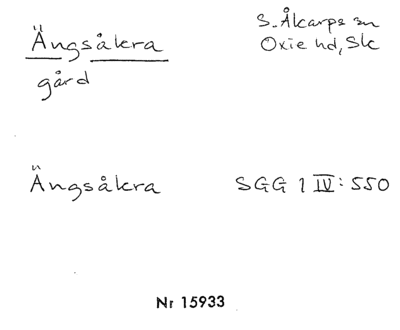 Ängsåkra
gård
S. Åkarps sn
Oxie hd, Skc
Ängsåkra SGG 1 IV: 550
Nr 15933